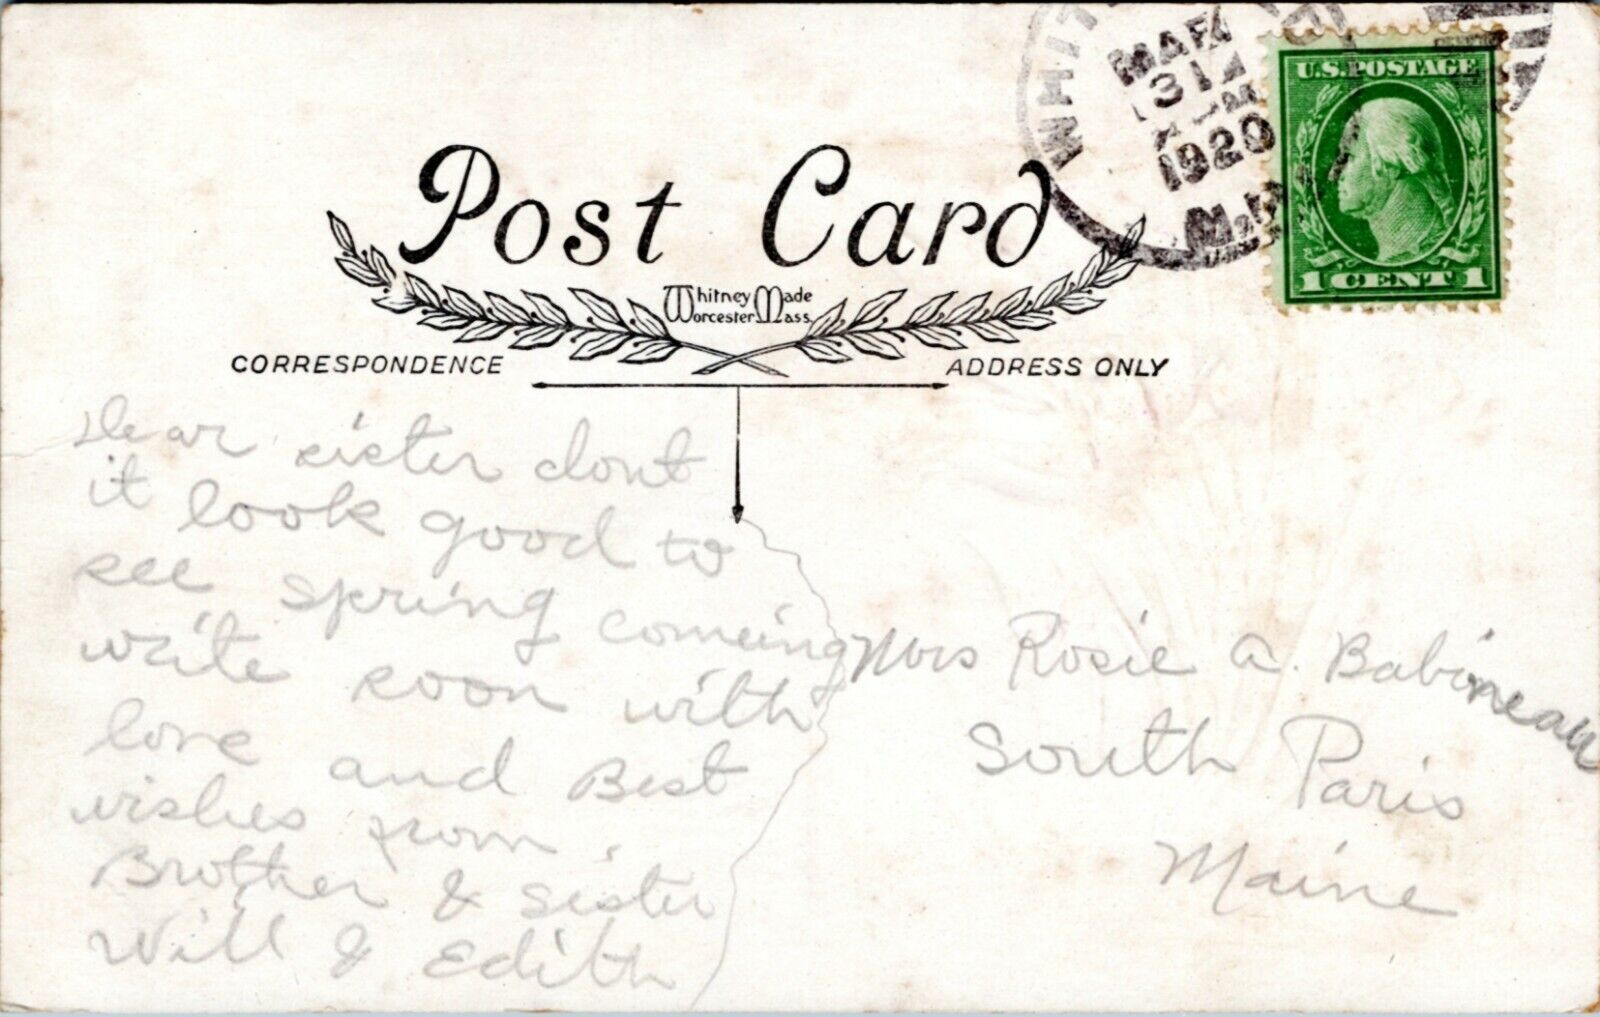 WHIT
MAR
31
M
1920
U.S. POSTAGE
1 CENT 1
Post Card
Whitney Made
Worcester Mass.
CORRESPONDENCE
ADDRESS ONLY
Dear sister dont
it look good to
see spring comeing
write soon with
love and Best
wishes from
Brother & Sister
Will & Edith
Mrs Rosie A. Babineau
South Paris
Maine